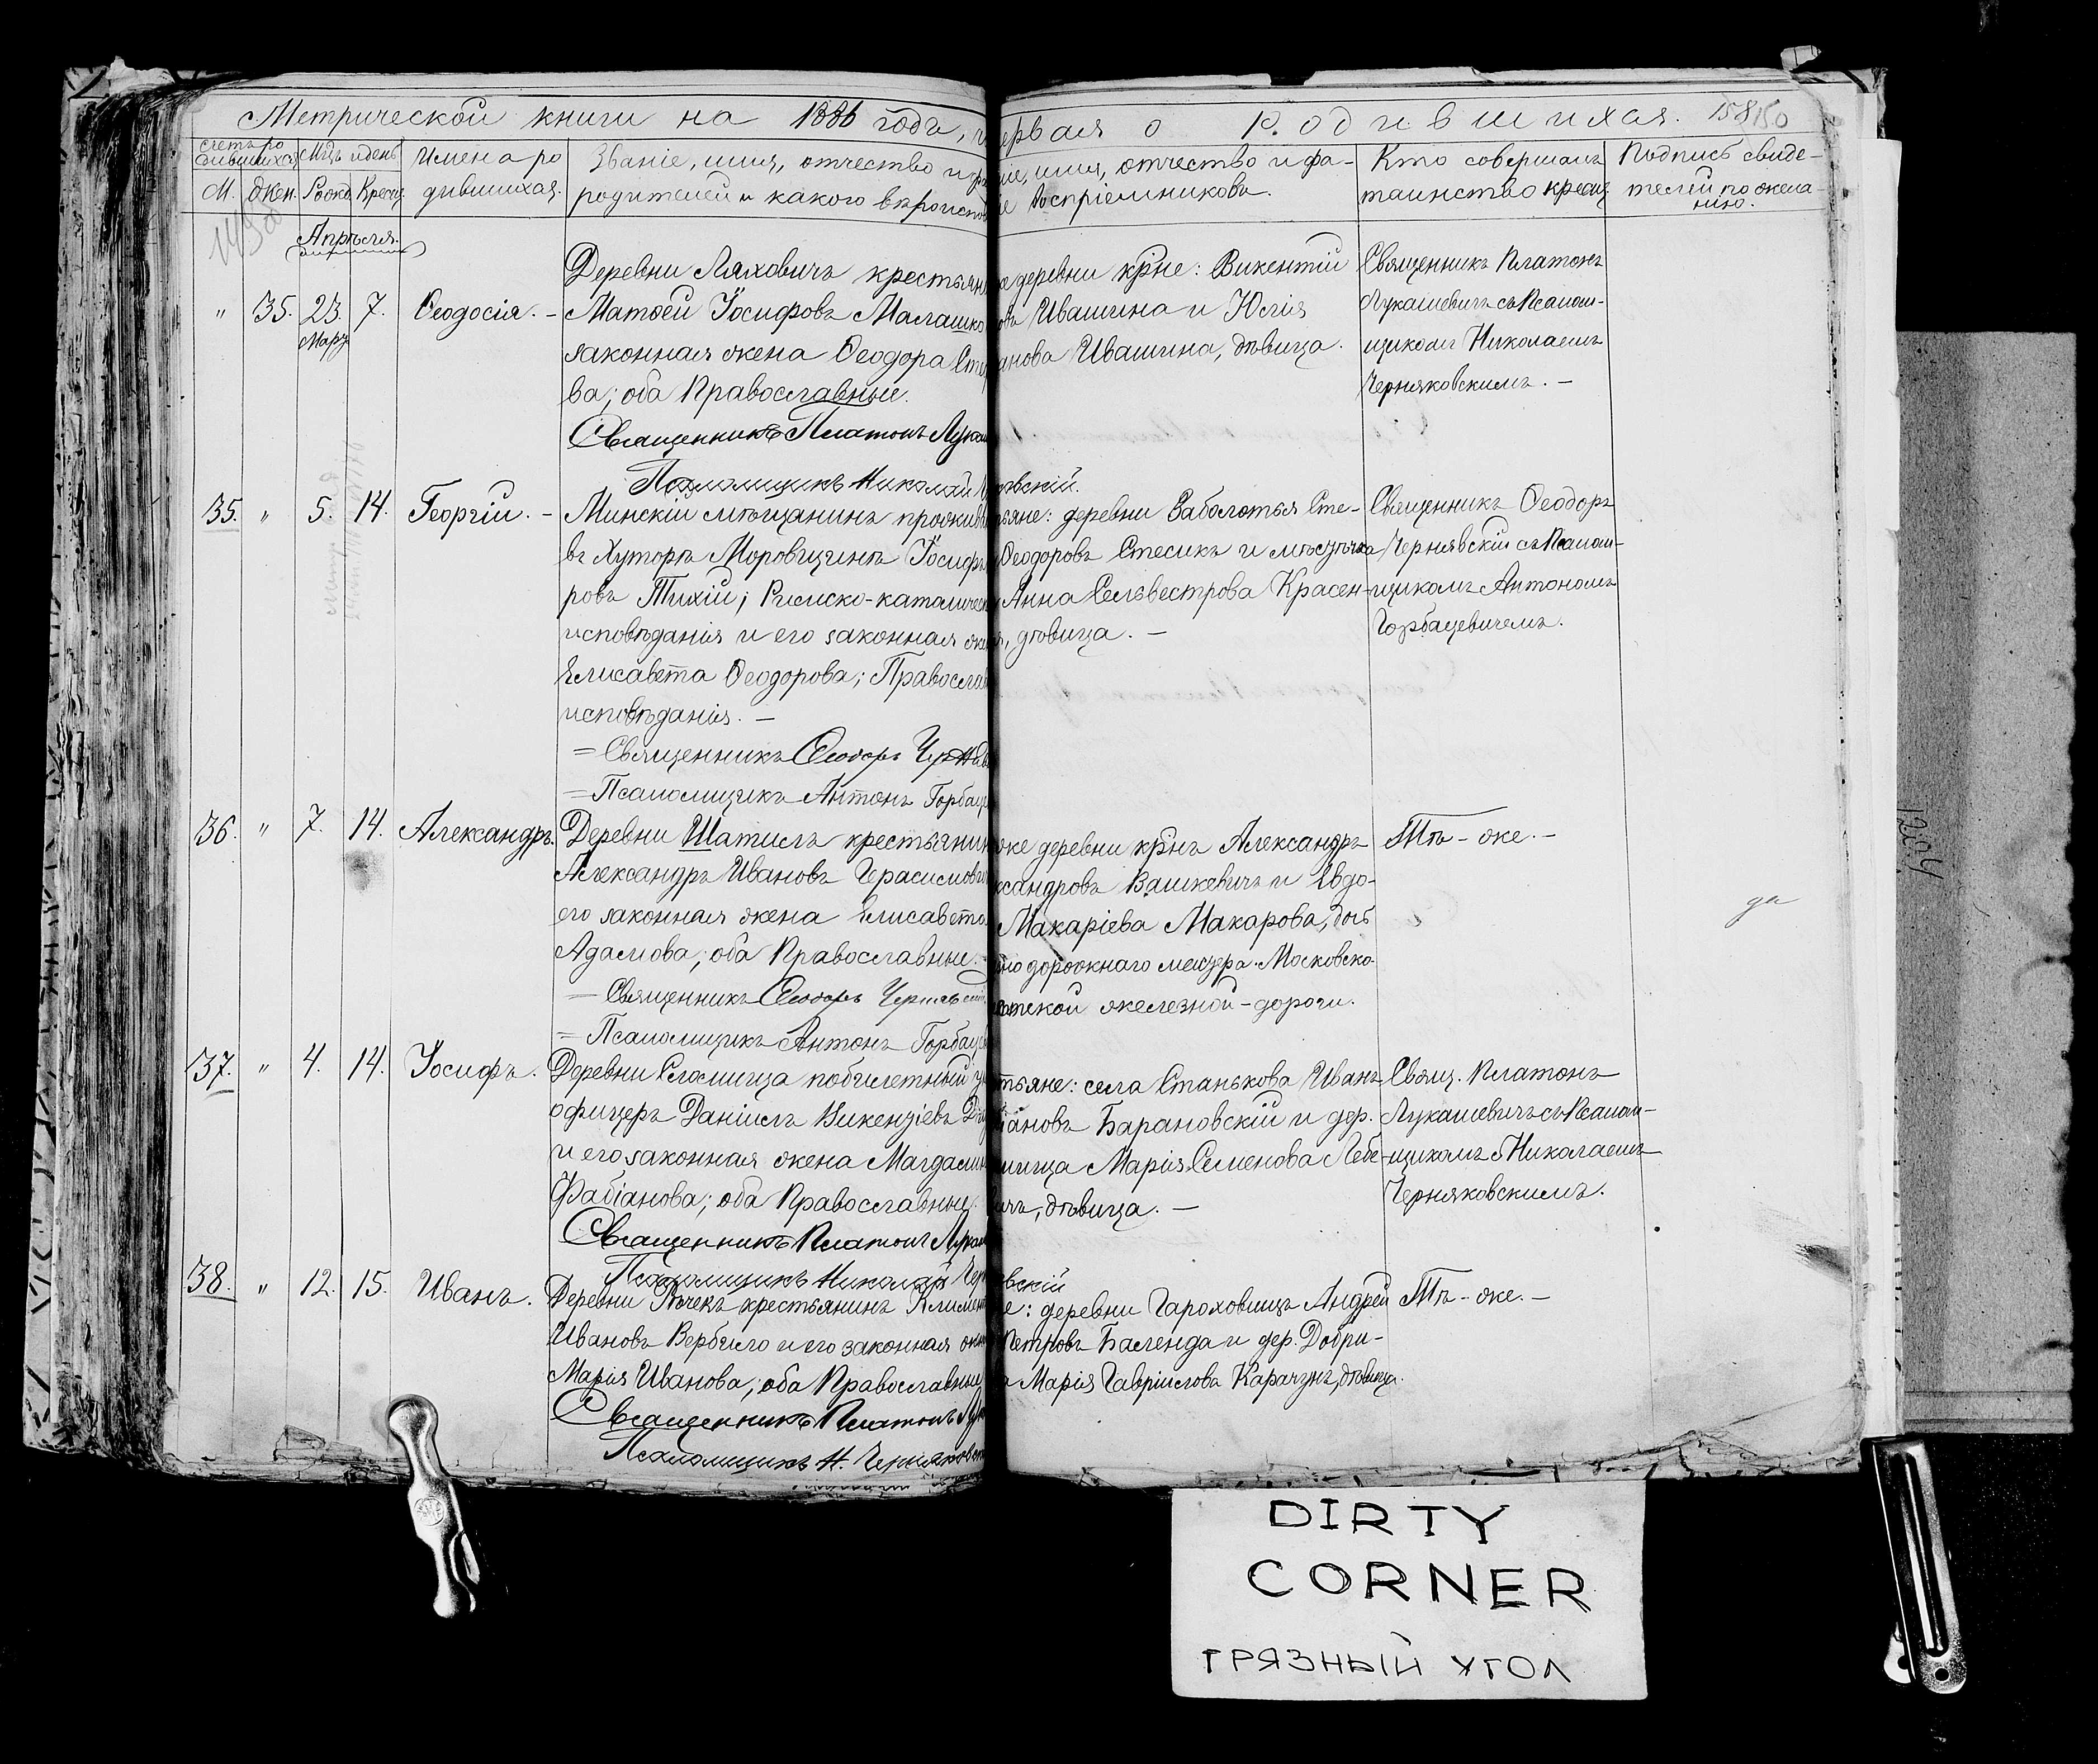 Метрической книги на 1886 годъ,
ервая о родившихся. 158 150
счетъ ро
дившихся
Мцъ и день
М.
Жен.
Рожд
Крещ.
Имена ро
дившихся.
Званіе, имя, отчество и фа
родителей и какого вѣроиспов
іе, имя, отчество и фа-
іе воспріемниковъ.
Кто совершалъ
таинство крещ
Подпись свиде-
телей по жела-
нію.
Апрѣля.
" 35. 23. 7. Ѳеодосія. -
Март
Деревни Ляховичъ крестьян
Матѳей Іосифовъ Малашко
законная жена Ѳеодора Сте
ва; оба Православные.
Священникъ Платонъ Лукаш
Псаломщикъ Николай Ч
е деревни крне: Викентій
овъ Ивашина и Юлія
анова Ивашина, дѣвица.
овскій.
Священникъ Платонъ
Лукашевичъ съ Псалом-
щикомъ Николаемъ
Черняковскимъ. -
35. " 5. 14. Георгій. -
Минскій мѣщанинъ прожив
въ Хуторѣ Моровщинѣ Іосифъ
ровъ Тихій; Римско-католичес
исповѣданія и его законная же
Елисавета Ѳеодорова; Православ
исповѣданія. -
= Священникъ Ѳеодоръ Черняв
= Псаломщикъ Антонъ Горбаце
ьяне: деревни Заболотья Сте-
Ѳеодоровъ Стесикъ и мѣстечка
Анна Сельвестрова Красен-
я, дѣвица. -
Священникъ Ѳеодоръ
Чернявскій съ Псалом-
щикомъ Антономъ
Горбацевичемъ.
36. " 7. 14. Александръ.
Деревни Шатилъ крестьянин
Александръ Ивановъ Герасимови
его законная жена Елисавета
Адамова; оба Православные. -
= Священникъ Ѳеодоръ Чернявскій
= Псаломщикъ Антонъ Горбаце
же деревни крнъ Александръ
ксандровъ Вашкевичъ и Евдо-
Макаріева Макарова, дочь
но дорожнаго мастера Московско-
тской железной-дороги.
Тѣ-же. -
да
37. " 4. 14. Іосифъ.
Деревни Слобища побилетный у
офицеръ Даніилъ Викензіевъ
и его законная жена Магдалин
Фабіанова; оба Православные.
Священникъ Платонъ Лукаш
Псаломщикъ Николай Чер
тьяне: села Станькова Иванъ
іановъ Барановскій и дер.
ища Марія Семенова Лебе-
ичъ, дѣвица. -
вскій
Свящ. Платонъ
Лукашевичъ съ Псалом-
щикомъ Николаемъ
Черняковскимъ.
38. " 12. 15. Иванъ.
Деревни Рѣчекъ крестьянинъ Климен
Ивановъ Вербило и его законная же
Марія Иванова; оба Православные
Священникъ Платонъ Лук
Псаломщикъ Н. Черняковс
е: деревни Гароховищъ Андрей
Петровъ Баленда и дер. Добри-
Марія Гавріилова Карачунъ, дѣвица.
Тѣ-же. -
1204
DIRTY
CORNER
ГРЯЗНЫЙ УГОЛ